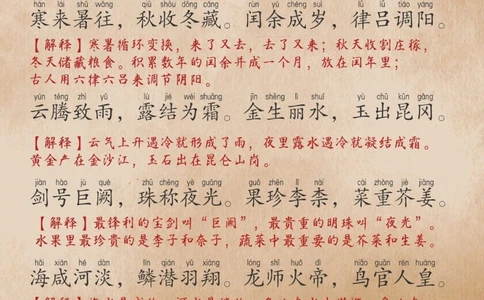 hán lái shǔ wǎng qiū shōu dōng cáng rùn yú chéng suì lǜ lǚ tiáo yáng
寒来暑往，秋收冬藏。闰余成岁，律吕调阳。
【解释】寒暑循环变换，来了又去，去了又来；秋天收割庄稼，
冬天储藏粮食。积累数年的闰余并成一个月，放在闰年里；
古人用六律六吕来调节阴阳。
yún téng zhì yǔ lù jié wéi shuāng jīn shēng lì shuǐ yù chū kūn gāng
云腾致雨，露结为霜。金生丽水，玉出昆冈。
【解释】云气上升遇冷就形成了雨，夜里露水遇冷就凝结成霜。
黄金产在金沙江，玉石出在昆仑山岗。
jiàn hào jù què zhū chēng yè guāng guǒ zhēn lǐ nài cài zhòng jiè jiāng
剑号巨阙，珠称夜光。果珍李柰，菜重芥姜。
【解释】最锋利的宝剑叫“巨阙”，最贵重的明珠叫“夜光”。
水果里最珍贵的是李子和奈子，蔬菜中最重要的是芥菜和生姜。
hǎi xián hé dàn lín qián yǔ xiáng lóng shī huǒ dì niǎo guān rén huáng
海咸河淡，鳞潜羽翔。龙师火帝，鸟官人皇。